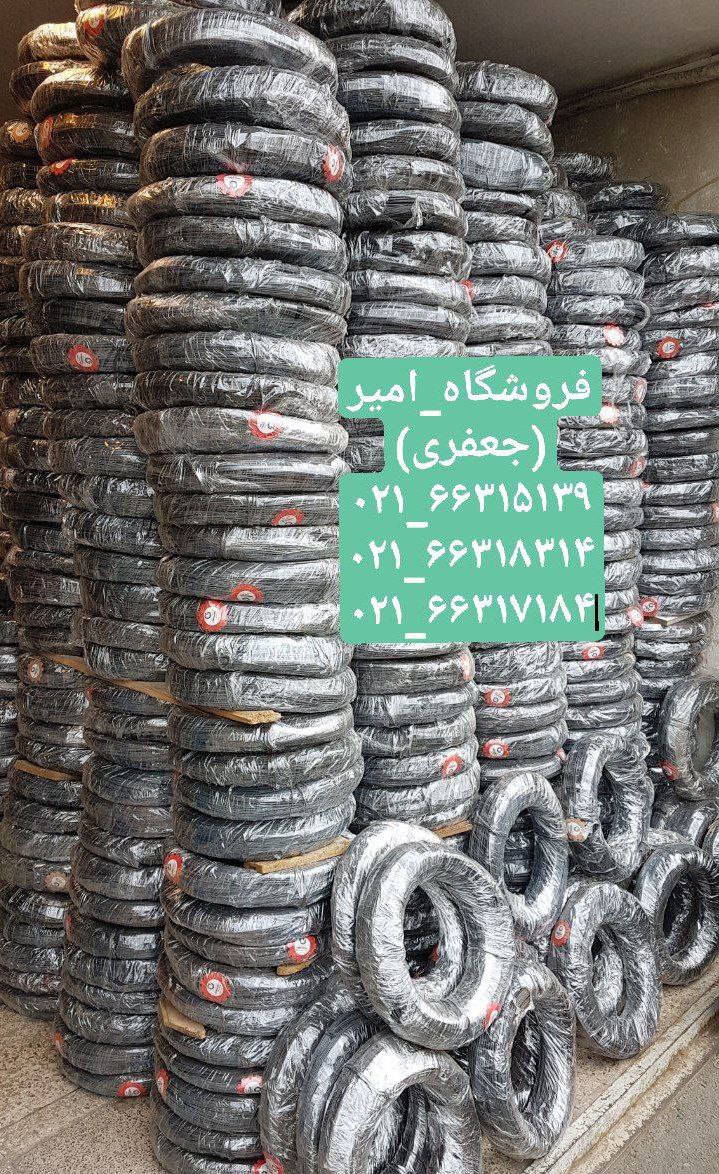 فروشگاه_امیر
(جعفری)
۰۲۱_۶۶۳۱۵۱۳۹
۰۲۱_۶۶۳۱۸۳۱۴
۰۲۱_۶۶۳۱۷۱۸۴